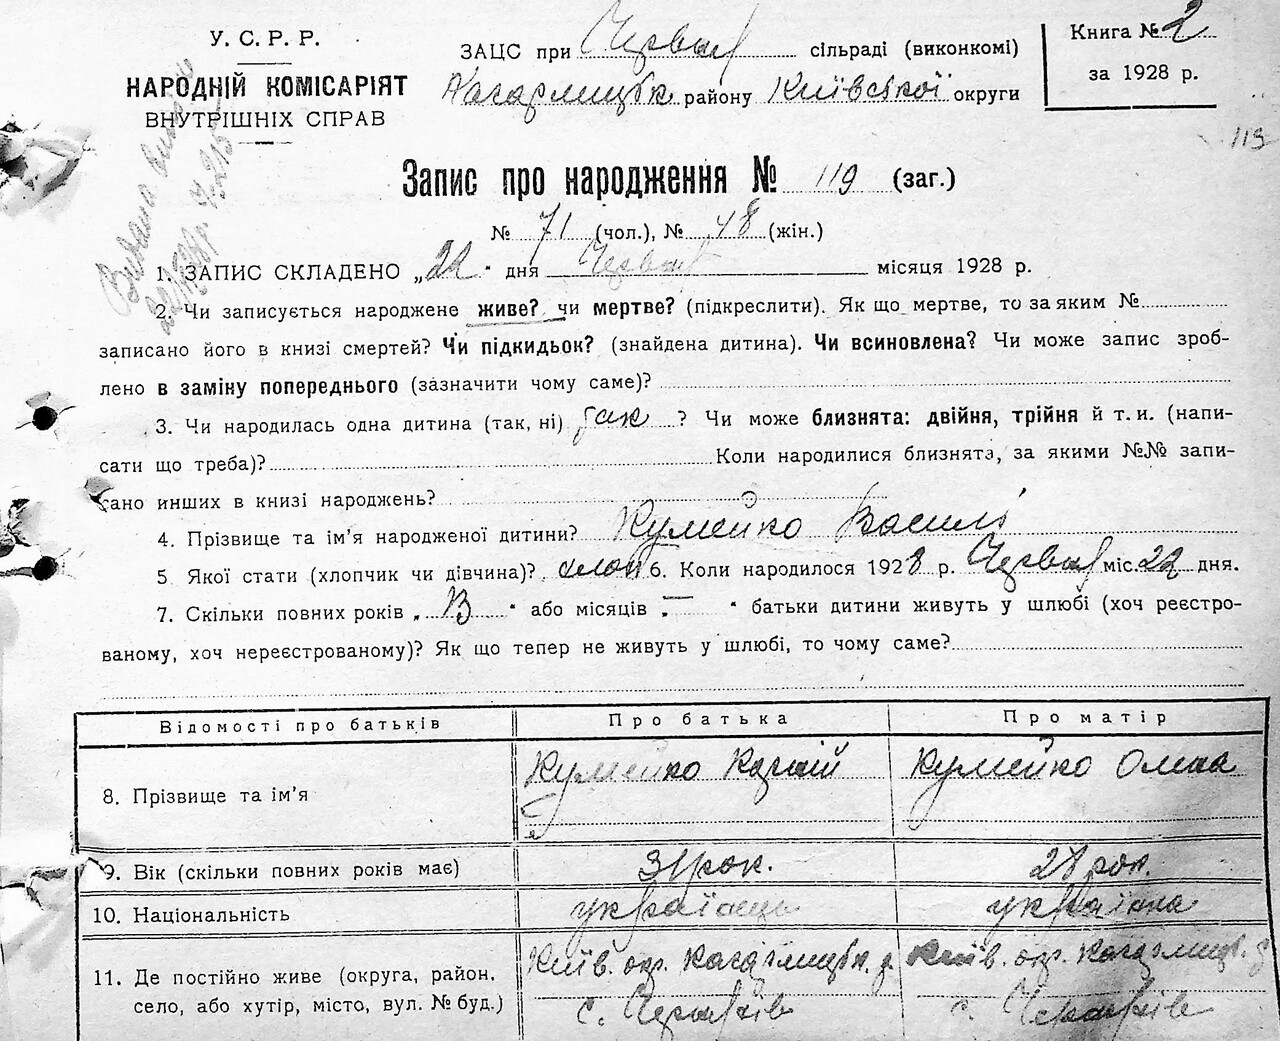 У. С. Р. Р.
НАРОДНІЙ КОМІСАРІЯТ
ВНУТРІШНІХ СПРАВ
ЗАЦС при сільраді (виконкомі)
Кагарлицьк. району Київської округи
Книга № 2
за 1928 р.
119
Запис про народження № 119 (заг.)
№ 71 (чол.), № 48 (жін.)
1. ЗАПИС СКЛАДЕНО „22" дня Червня місяця 1928 р.
2. Чи записується народжене живе? чи мертве? (підкреслити). Як що мертве, то за яким №
записано його в книзі смертей? Чи підкидьок? (знайдена дитина). Чи всиновлена? Чи може запис зроб-
лено в заміну попереднього (зазначити чому саме)?
3. Чи народилась одна дитина (так, ні) так ? Чи може близнята: двійня, трійня й т. и. (напи-
сати що треба)? Коли народилися близнята, за якими №№ запи-
сано инших в книзі народжень?
4. Прізвище та ім'я народженої дитини? Кумейко Василь
5 Якої стати (хлопчик чи дівчина)? хлоп 6. Коли народилося 1928 р. Червня міс. 22 дня.
7. Скільки повних років „ " або місяців „ — " батьки дитини живуть у шлюбі (хоч реєстро-
ваному, хоч нереєстрованому)? Як що тепер не живуть у шлюбі, то чому саме?
Відомості про батьків Про батька Про матір
8. Прізвище та ім'я Кумейко Кумейко Олена
9. Вік (скільки повних років має) 31 рок. 28 рок.
10. Національність українець українка
11. Де постійно живе (округа, район, Київ. окр. Кагарлицьк. р. Київ. окр. Кагарлицьк. р.
село, або хутір, місто, вул. № буд.) с. с.